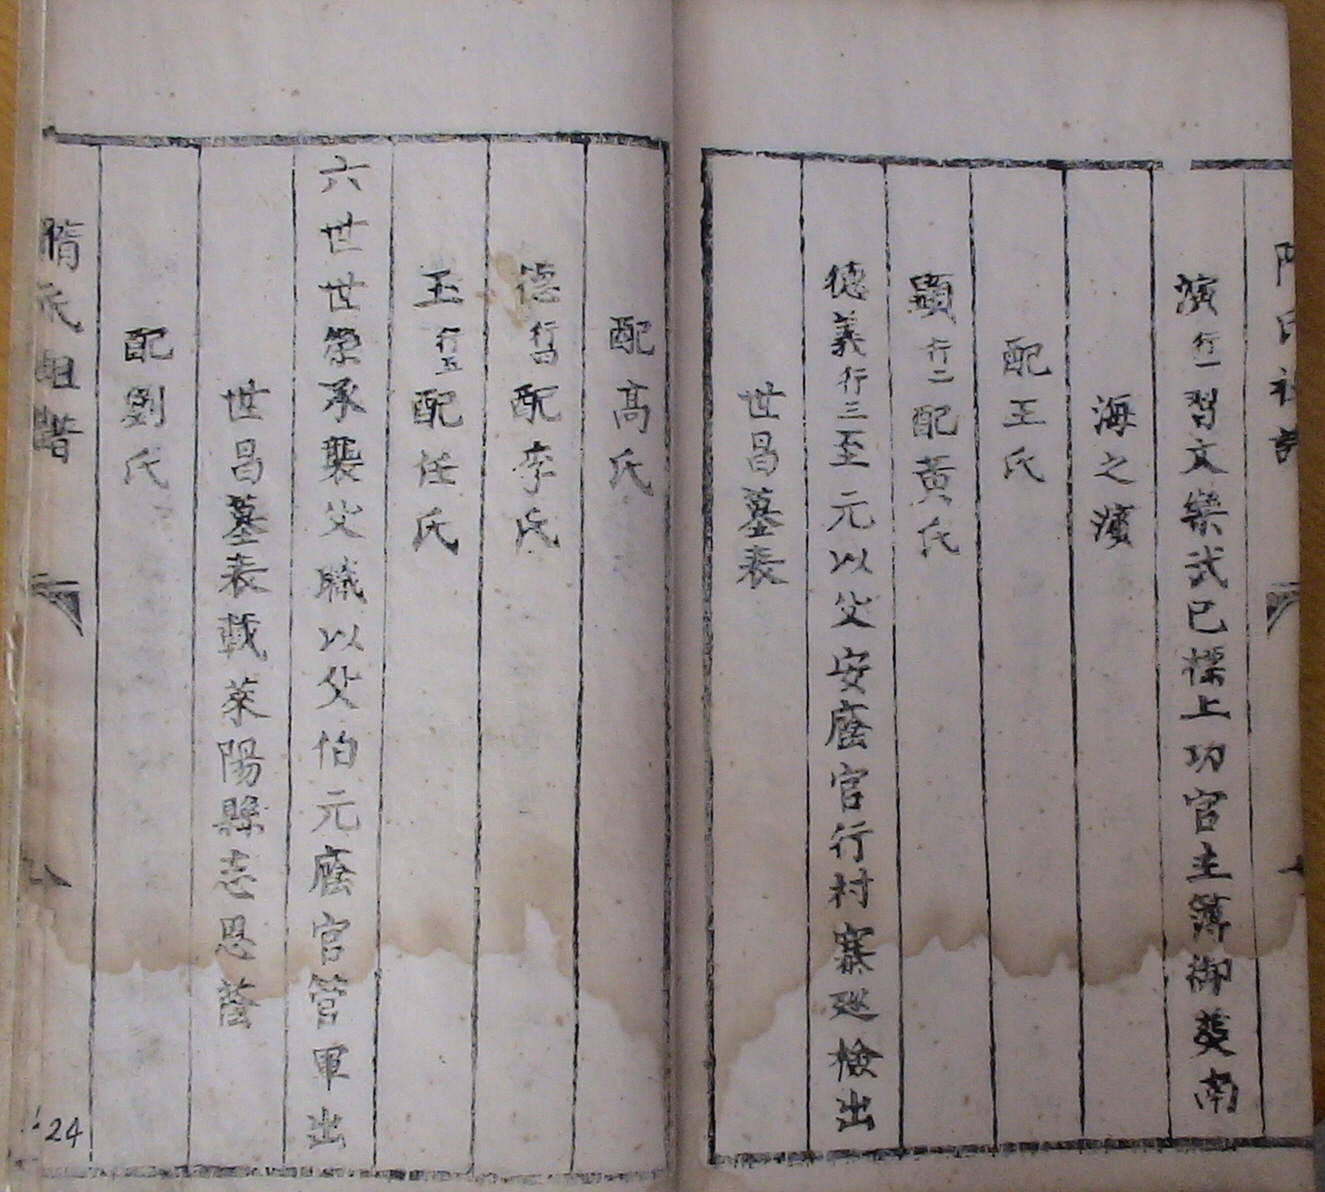 演行一習文樂武已標上功官主簿御葵南
海之濱
配王氏
顯行二配黃氏
德義行三至元以父安廕官行村寨廵檢出
世昌墓表
配高氏
德行四配李氏
玉行五配任氏
六世世榮承襲父職以父伯元廕官管軍出
世昌墓表載萊陽縣志恩蔭
配劉氏
隋氏祖譜
24